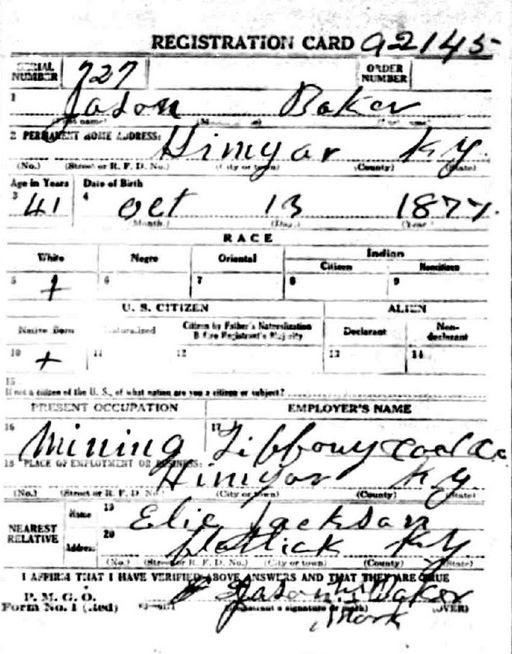 REGISTRATION CARD A2145
SERIAL NUMBER 727 ORDER NUMBER
1 Jason Baker
2 PERMANENT HOME ADDRESS: Himyar Ky
(No.) (Street or R. F. D. No.) (City or town) (County) (State)
Age in Years Date of Birth
3 41 4 Oct 13 1877.
(Month.) (Day.) (Year.)
RACE
White Negro Oriental Indian
Citizen Noncitizen
5 + 6 7 8 9
U. S. CITIZEN ALIEN
Native Born Naturalized Citizen by Father's Naturalization Before Registrant's Majority Declarant Non-declarant
10 + 11 12 13 14
15
If not a citizen of the U. S., of what nation are you a citizen or subject?
PRESENT OCCUPATION EMPLOYER'S NAME
16 Mining 17 Coal Co
18 PLACE OF EMPLOYMENT OR BUSINESS: Himyar Ky
(No.) (Street or R. F. D. No.) (City or town) (County) (State)
NEAREST RELATIVE Name 19 Elie Jackson
Address 20 Flat Lick Ky
(No.) (Street or R. F. D. No.) (City or town) (County) (State)
I AFFIRM THAT I HAVE VERIFIED ABOVE ANSWERS AND THAT THEY ARE TRUE
P. M. G. O.
Form No. 1 (Red) Jason his Baker
(Registrant's signature or mark) (OVER)
Mark